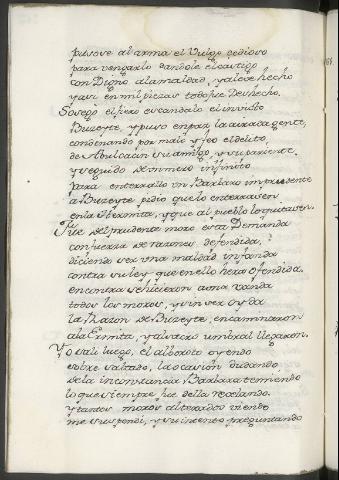 pusose al arma el Vulgo sedicioso
para vengarlo dandole el castigo
con Digno a la maldad, y al este hecho
y assi en mil piezas todo fue Deshecho.
Sosego el fiero escandalo el invicto
Buzeyte, y puso en paz la ayrada gente,
condenando por malo y feo el delito
de Abulcacin su amigo y su pariente.
y seguido de numero infinito
para enterrallo un Barbaro imprudente
a Buzeyte pidio que lo enterrassen
en la Hermita, y que al pueblo lo quitassen.
Fue del prudente moro esta Demanda
con fuerza de razones defendida,
diciendo ser una maldad infanda
contra su ley que en ello hera ofendida.
encontra se hicieron a una vanda
todos los moros, y sin ser oyda
la Razon de Buzeyte, encaminaron
a la Ermita, y al sacro umbral llegaron.
Yo sali luego, el alboroto oyendo
sobresaltado, la ocasion dudando
de la inconstancia Barbara temiendo
lo que siempre fue della recelando.
y tantos moros alterados viendo
me suspendi, y viniendo preguntando